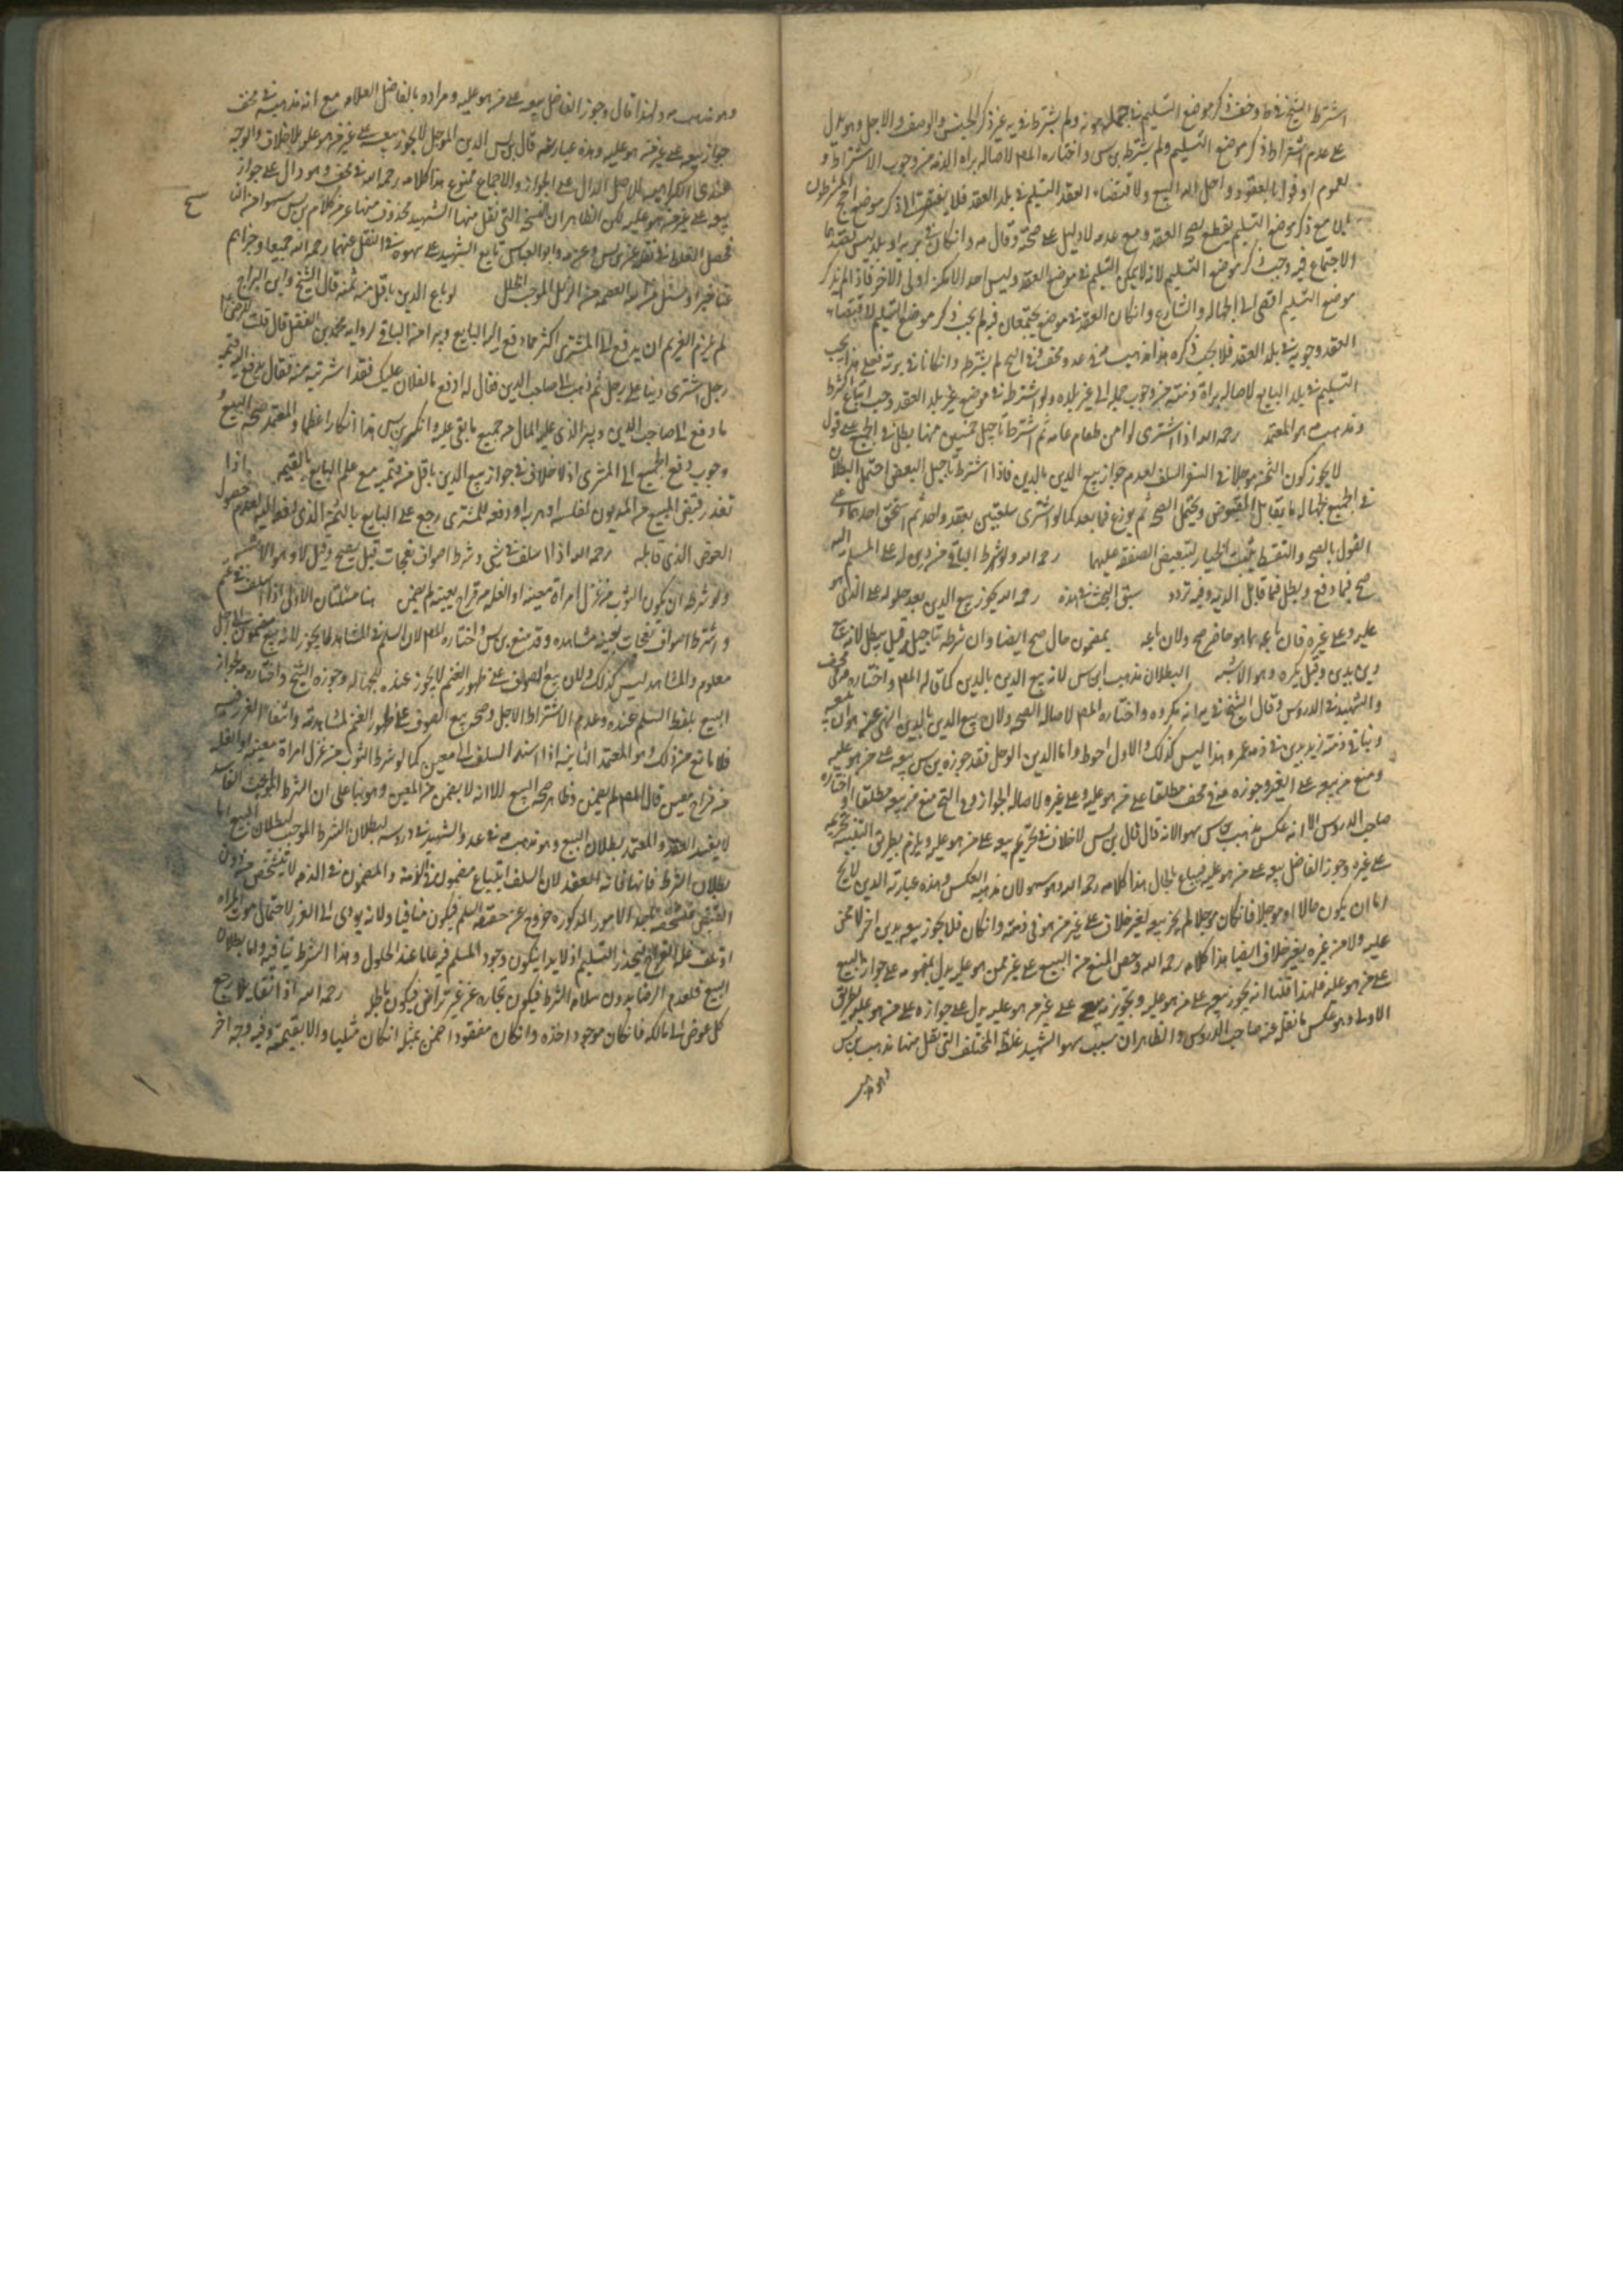 اشترط الشيخ في ط و خف ذكر موضع التسليم في جمله مونه ولم يشترط في يه غير ذكر الجنس والوصف والاجل وهو يدل
على عدم اشتراط ذكر موضع التسليم ولم يشترطه بن س واختاره المص لاصاله براه الذمه من وجوب الاشتراط و
لعموم اوفوا بالعقود واحل الله البيع ولاقتضاء العقد التسليم في بلد العقد فلا يفتقر الى ذكر موضع احتج المشترطون
بان مع ذكر موضع التسليم يقطع بصحه العقد ومع عدمه لا دليل على صحته وقال مه وانكان في بريه او بلد ليس يقصدهما
الاجتماع فيه وجب ذكر موضع التسليم لانه لا يمكن التسليم في موضع العقد وليس احد الامكنه اولى من الاخر فاذا لم يذكر
موضع التسليم افضى الى الجهاله والتنازع وانكان العقد في موضع يجتمعان فيه لم يجب ذكر موضع التسليم لاقتضاء
العقد وجوبه في بلد العقد فلا يجب ذكره هذا مذهبه في عد و مخف وفي التح لم يشترطه وانكانا في بريه فعلى هذا يجب
التسليم في بلد البايع لاصاله براة ذمته من وجوب حمله الى غير بلده ولو اشترطه في موضع غير بلد العقد وجب اتباع الشرط
ومذهبه هو المعتمد رحمه الله اذا اشترى لوا من طعام عامه ثم اشترط تاجيل خمسين منها بطل في الجميع على قول
لا يجوز كون الثمن موجلا في السلف لعدم جواز بيع الدين بالدين فاذا اشترط تاجيل البعض احتمل البطلان
في الجميع لجهاله ما يقابل المقبوض ويحتمل الصحه ثم يوزع فما بعد كما لو اشترى سلعتين بعقد واحد ثم استحق احدهما وعلى
القول بالصحه والتقسيط يثبت له الخيار لتبعيض الصفقه عليهما رحمه الله ولو شرط الباقي من دين له على المسلم اليه
صح فيما دفع وبطل فيما قابل الدين وفيه تردد سبق البحث في هذه رحمه الله يجوز بيع الدين بعد حلوله على الذي هو
عليه وعلى غيره فان باعه بما هو حاضر صح ولان باعه بمضمون حال صح ايضا وان شرط تاجيله قيل يبطل لانه بيع
دين بدين وقيل يكره وهو الاشبه البطلان مذهب ابن س لانه بيع الدين بالدين كما قاله المص واختاره مه في مخف
والشهيد في الدروس وقال الشيخ في يه انه مكروه واختاره المص لاصاله الصحه ولان بيع الدين بالدين المنهي عنه هو ان يبيعه
دينا في ذمته زيد بدين في ذمه عمرو وهذا ليس كذلك والاول احوط واما الدين الموجل فقد جوزه بن س بيعه على من هو عليه
ومنع من بيعه على الغير وجوزه مه في مخف مطلقا على من هو عليه وعلى غيره لاصاله الجواز وفي التح منع من بيعه مطلقا واختاره
صاحب الدروس الا انه عكس مذهب بن س سهوا لانه قال قال بن س لا خلاف في تحريم بيعه على من هو عليه ويلزم بطريق التنبيه تحريمه
على غيره وجوز الفاضل بيعه على من هو عليه فيباع بالحال هذا كلامه رحمه الله وهو سهو لان مذهبه العكس وهذه عبارته الدين لا يخ
اما ان يكون حالا او موجلا فانكان موجلا لم يجز بيعه بغير خلاف على غير من هو في ذمته وانكان فلا يجوز بيعه بدين اخر لا ممن
عليه ولا من غيره بغير خلاف ايضا هذا كلامه رحمه الله وخص المنع من البيع على غير من هو عليه يدل بمفهومه على جواز البيع
على من هو عليه فلهذا قلنا انه يجوز بيعه على من هو عليه وتجويز بيعه على غير من هو عليه يدل على جوازه على من هو عليه بطريق
الاولى وهو عكس ما نقل عنه صاحب الدروس والظاهر ان سبب سهو الشهيد غلط المختلف التي نقل منها مذهب بن س
وهو مذهب
وهو مذهب مه ولهذا قال وجوز الفاضل بيعه على من هو عليه ومراده بالفاضل العلامه مع انه مذهبه في مخف
جواز بيعه على غير من هو عليه وهذه عبارته قال بن س الدين الموجل لا يجوز بيعه على غير من هو عليه بلا خلاف والوجه
عندي الكراهيه للاصل الدال على الجواز والاجماع ممنوع هذا كلامه رحمه الله في مخف وهو دال على جواز
بيعه على غير من هو عليه لكن الظاهر ان النسخه التي نقل منها الشهيد محذوف منها غير كلام بن س سهوا من النا
فحصل الغلط في نقله عن بن س وعن مه وابو العباس تابع الشهيد على سهوه في النقل عنهما رحمهم الله جميعا وجزاهم
عنا خيرا ونسئل من الله العصمه من الزلل الموجب للخلل لو باع الدين باقل منه ثمنه قال الشيخ وابن البراج
لم يلزم الغريم ان يدفع الى المشتري اكثر مما دفع الى البايع ويبرا من الباقي لروايه محمد بن الفضل قال قلت للرضا ع
رجل اشترى دينا على رجل ثم ذهب الى صاحب الدين فقال له ادفع ما لفلان عليك فقد اشتريته منه فقال يدفع اليه قيمه
ما دفع الى صاحب الدين وبرئ الذي عليه المال من جميع ما بقي عليه وانكره بن س هذا انكارا عظيما والمعتمد صحه البيع و
وجوب دفع الجميع الى المشتري اذ لا خلاف في جواز بيع الدين باقل من قيمته مع علم البايع بالقيمه اذا
تعذر قبض المبيع من المديون لفلسه او هربه او دفعه للمشتري رجع على البايع بالثمن الذي دفعه اليه لعدم حصول
العوض الذي قابله رحمه الله اذا اسلف في شي وشرط اصواف نعجات قيل يصح وقيل لا وهو الاشبه
ولو شرط ان يكون الثوب من غزل امراة معينه او الغله من قراح بعينه لم يضمن هنا مسئلتان الاولى اذا اسلف في غنم
واشترط اصواف نعجات بعينه مشاهده وقد منع بن س واختاره المص لان السلم في المشاهد لا يجوز لانه بيع مضمون الى اجل
معلوم والمشاهد ليس كذلك ولان بيع الصوف على ظهور الغنم لا يجوز عنده للجهاله وجوزه الشيخ واختاره مه لجواز
البيع بلفظ السلم عنده وعدم الاشتراط الاجل وصحه بيع الصوف على ظهور الغنم لمشاهدته وانتفاء الغرر فيه
فلا مانع من ذلك وهو المعتمد الثانيه اذا استند السلف الى معين كما لو شرط الثوب من غزل امراة معينه او الغله
من قراح معين قال المص لم يضمن وظاهره صحه البيع الا انه لا يضمن من المعين وهو بناء على ان الشرط الفاسد
لا يفسد العقد والمعتمد بطلان البيع وهو مذهب مه في عد والشهيد في دروسه لبطلان الشرط الموجب لبطلان البيع اما
بطلان الشرط فانها منافاته للعقد لان السلف ابتياع مضمون في الذمة والمضمون في الذمه لا يتشخص من دون
القبض فتشخصه باحد الامور المذكوره خروج عن حقيقه السلم فيكون منافيا ولانه يودي الى الغرر لاحتمال موت المراه
او تلف غله القراح فيتعذر التسليم اذ لا بد ان يكون وجود المسلم فيه غالبا عند الحلول وهذا الشرط ينافيه واما بطلان
البيع فلعدم الرضا بدون سلامه الشرط فيكون تجاره عن غير تراض فيكون باطله رحمه الله اذا تقايلا رجع
كل عوض الى مالكه فانكان موجودا اخذه وانكان مفقودا ضمن بمثله انكان مثليا والا بقيمته وفيه وجه اخر